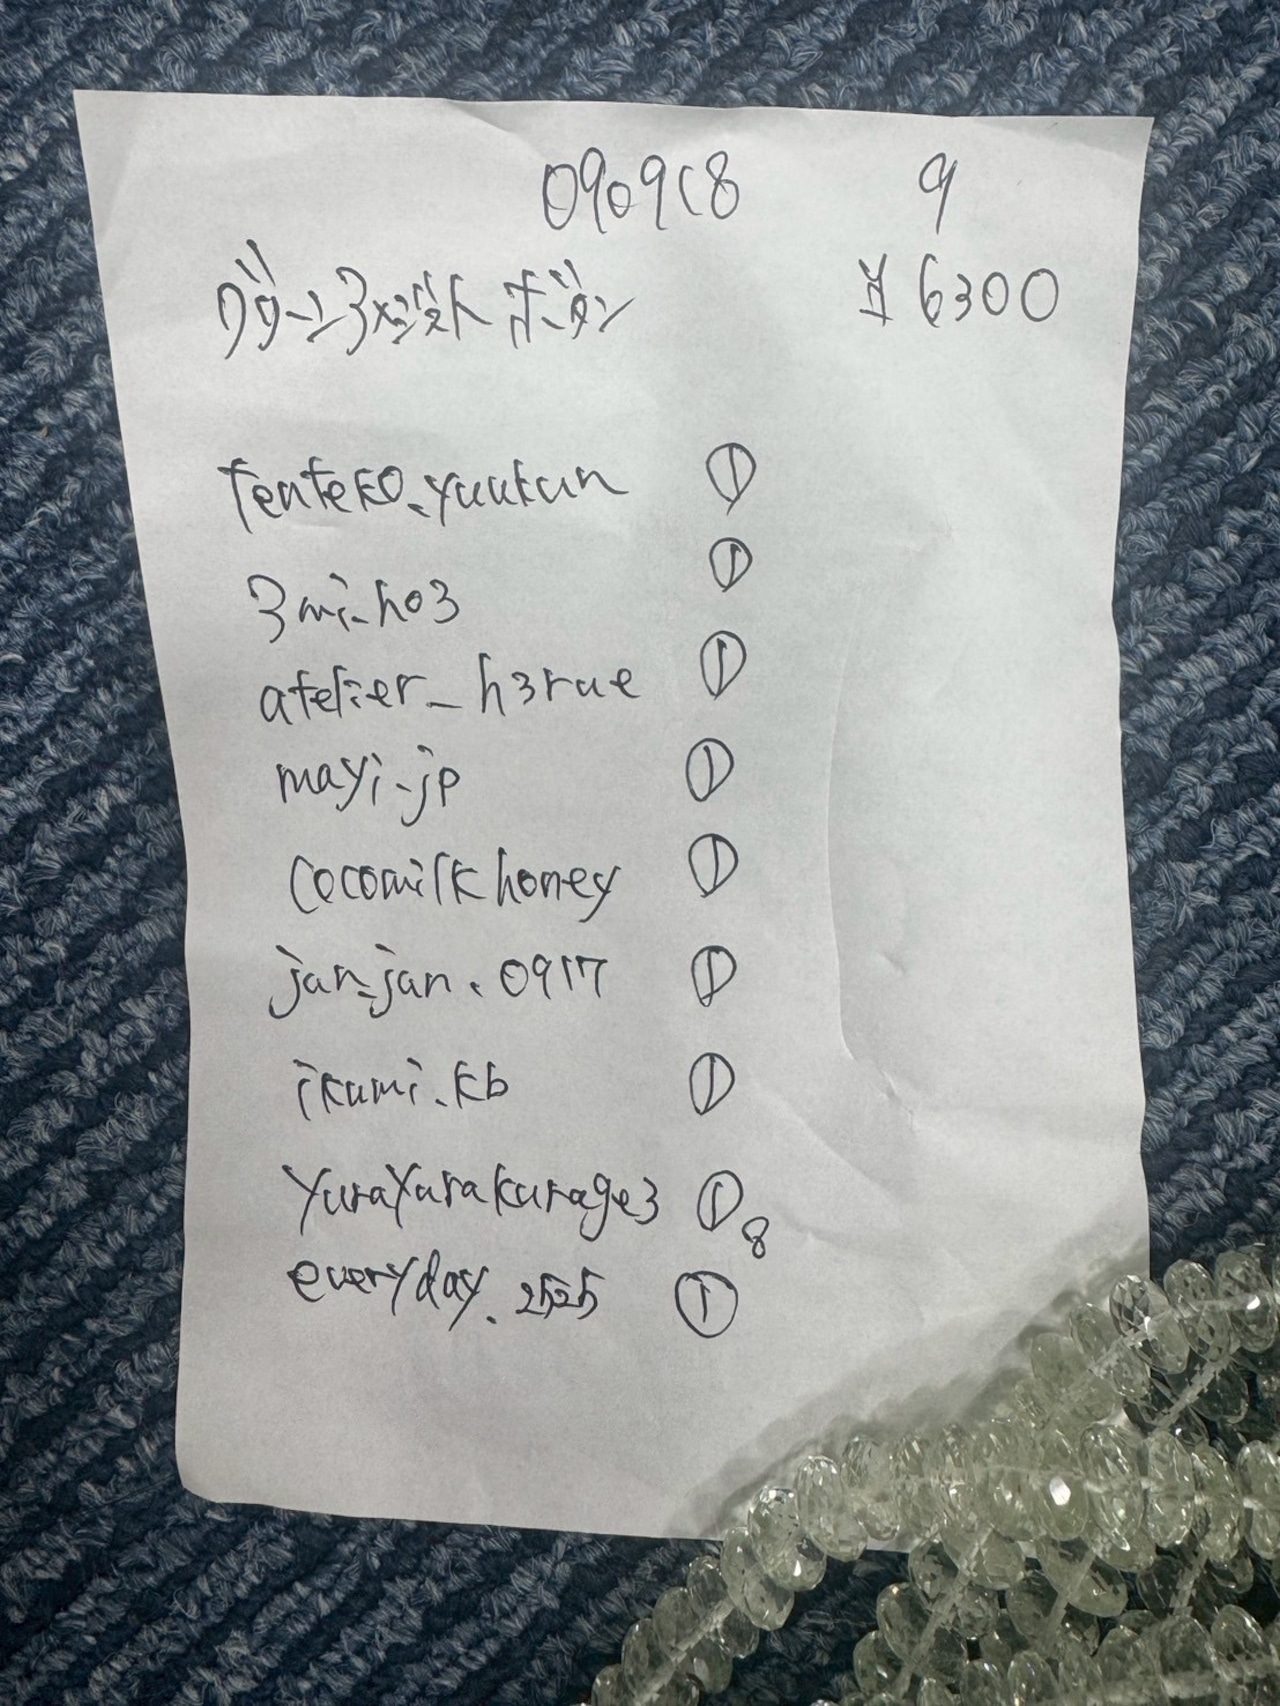 0909C8 9
グリーンアメジスト ボタン ¥6300
tenteko.yuukun ①
3mi_ho3 ①
atelier_h3rue ①
mayi_jp ①
cocomilkhoney ①
jan_jan.0917 ①
ikumi.kb ①
yurayurakurage3 ① 8
everyday.2525 ①